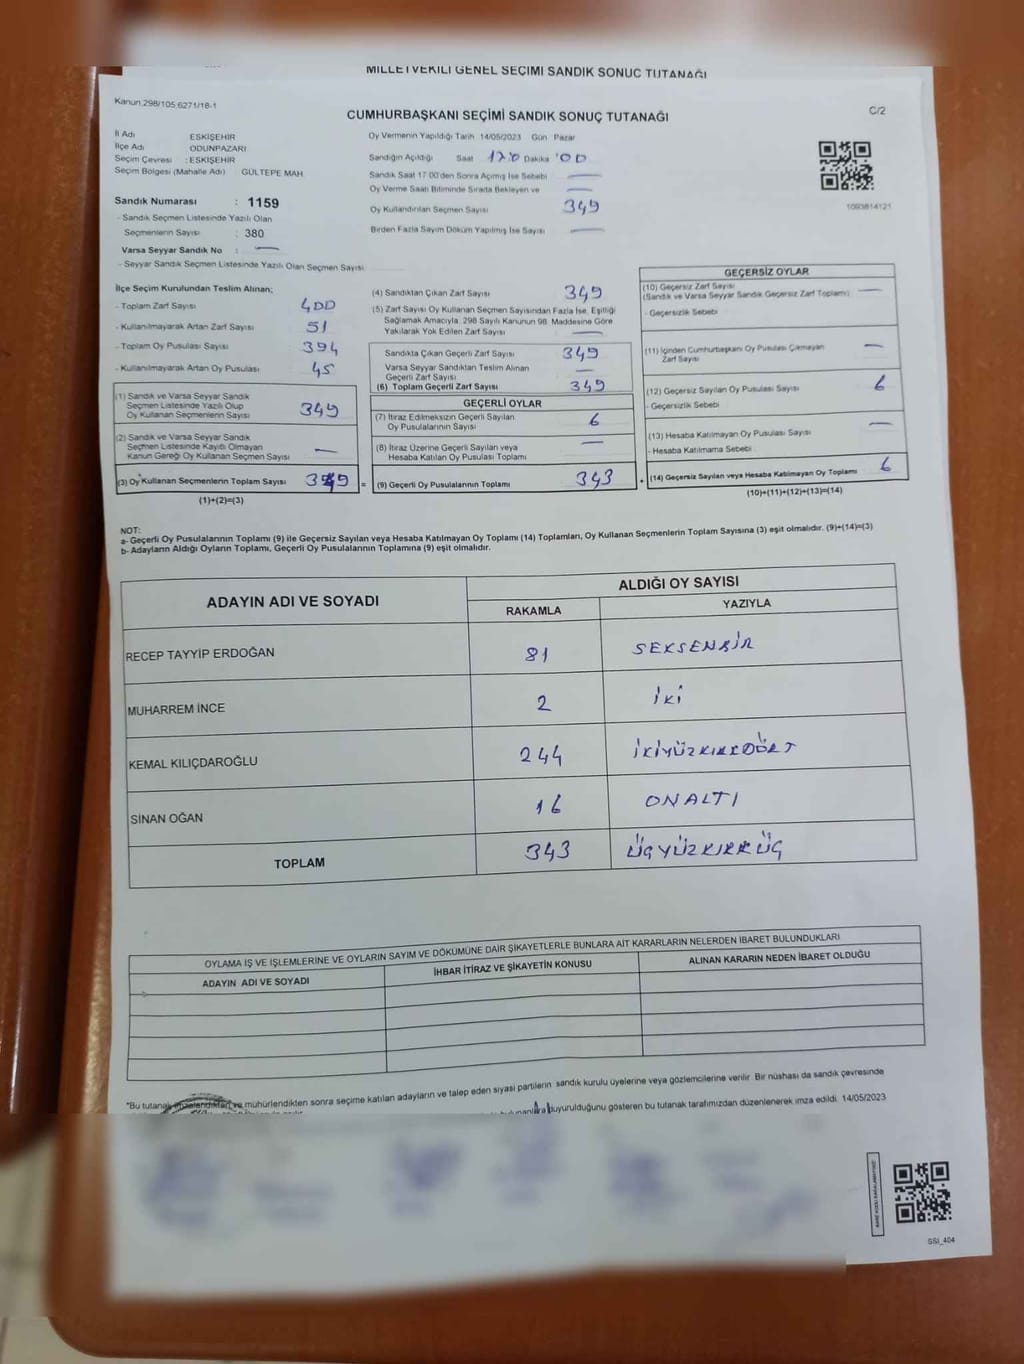 MİLLETVEKİLİ GENEL SEÇİMİ SANDIK SONUÇ TUTANAĞI
Kanun 298/105;6271/18-1
CUMHURBAŞKANI SEÇİMİ SANDIK SONUÇ TUTANAĞI
C/2
İl Adı ESKİŞEHİR
İlçe Adı ODUNPAZARI
Seçim Çevresi : ESKİŞEHİR
Seçim Bölgesi (Mahalle Adı) GÜLTEPE MAH.
Sandık Numarası : 1159
- Sandık Seçmen Listesinde Yazılı Olan
Seçmenlerin Sayısı : 380
Varsa Seyyar Sandık No : —
- Seyyar Sandık Seçmen Listesinde Yazılı Olan Seçmen Sayısı
Oy Vermenin Yapıldığı Tarih 14/05/2023 Gün Pazar
Sandığın Açıldığı Saat Dakika 00
Sandık Saat 17:00'den Sonra Açılmış İse Sebebi —
Oy Verme Saati Bitiminde Sırada Bekleyen ve —
Oy Kullandırılan Seçmen Sayısı 349
Birden Fazla Sayım Döküm Yapılmış İse Sayısı —
1093814121
İlçe Seçim Kurulundan Teslim Alınan;
- Toplam Zarf Sayısı 400
- Kullanılmayarak Artan Zarf Sayısı 51
- Toplam Oy Pusulası Sayısı 394
- Kullanılmayarak Artan Oy Pusulası 45
(1) Sandık ve Varsa Seyyar Sandık
Seçmen Listesinde Yazılı Olup
Oy Kullanan Seçmenlerin Sayısı 349
(2) Sandık ve Varsa Seyyar Sandık
Seçmen Listesinde Kayıtlı Olmayan
Kanun Gereği Oy Kullanan Seçmen Sayısı —
(3) Oy Kullanan Seçmenlerin Toplam Sayısı 349 =
(1)+(2)=(3)
(4) Sandıktan Çıkan Zarf Sayısı 349
(5) Zarf Sayısı Oy Kullanan Seçmen Sayısından Fazla İse, Eşitliği
Sağlamak Amacıyla, 298 Sayılı Kanunun 98. Maddesine Göre
Yakılarak Yok Edilen Zarf Sayısı —
Sandıkta Çıkan Geçerli Zarf Sayısı 349
Varsa Seyyar Sandıktan Teslim Alınan
Geçerli Zarf Sayısı —
(6) Toplam Geçerli Zarf Sayısı 349
GEÇERLİ OYLAR
(7) İtiraz Edilmeksizin Geçerli Sayılan
Oy Pusulalarının Sayısı 6
(8) İtiraz Üzerine Geçerli Sayılan veya
Hesaba Katılan Oy Pusulası Toplamı —
(9) Geçerli Oy Pusulalarının Toplamı 343 +
GEÇERSİZ OYLAR
(10) Geçersiz Zarf Sayısı
(Sandık ve Varsa Seyyar Sandık Geçersiz Zarf Toplamı) —
- Geçersizlik Sebebi
(11) İçinden Cumhurbaşkanı Oy Pusulası Çıkmayan
Zarf Sayısı —
(12) Geçersiz Sayılan Oy Pusulası Sayısı 6
- Geçersizlik Sebebi
(13) Hesaba Katılmayan Oy Pusulası Sayısı —
- Hesaba Katılmama Sebebi
(14) Geçersiz Sayılan veya Hesaba Katılmayan Oy Toplamı 6
(10)+(11)+(12)+(13)=(14)
NOT:
a- Geçerli Oy Pusulalarının Toplamı (9) ile Geçersiz Sayılan veya Hesaba Katılmayan Oy Toplamı (14) Toplamları, Oy Kullanan Seçmenlerin Toplam Sayısına (3) eşit olmalıdır. (9)+(14)=(3)
b- Adayların Aldığı Oyların Toplamı, Geçerli Oy Pusulalarının Toplamına (9) eşit olmalıdır.
ADAYIN ADI VE SOYADI
ALDIĞI OY SAYISI
RAKAMLA YAZIYLA
RECEP TAYYİP ERDOĞAN 81 SEKSENBİR
MUHARREM İNCE 2 İKİ
KEMAL KILIÇDAROĞLU 244 İKİYÜZKIRKDÖRT
SİNAN OĞAN 16 ONALTI
TOPLAM 343 ÜÇYÜZKIRKÜÇ
OYLAMA İŞ VE İŞLEMLERİNE VE OYLARIN SAYIM VE DÖKÜMÜNE DAİR ŞİKAYETLERLE BUNLARA AİT KARARLARIN NELERDEN İBARET BULUNDUKLARI
ADAYIN ADI VE SOYADI İHBAR İTİRAZ VE ŞİKAYETİN KONUSU ALINAN KARARIN NEDEN İBARET OLDUĞU
*Bu tutanak ve mühürlendikten sonra seçime katılan adayların ve talep eden siyasi partilerin sandık kurulu üyelerine veya gözlemcilerine verilir. Bir nüshası da sandık çevresinde
duyurulduğunu gösteren bu tutanak tarafımızdan düzenlenerek imza edildi. 14/05/2023
SSİ_404